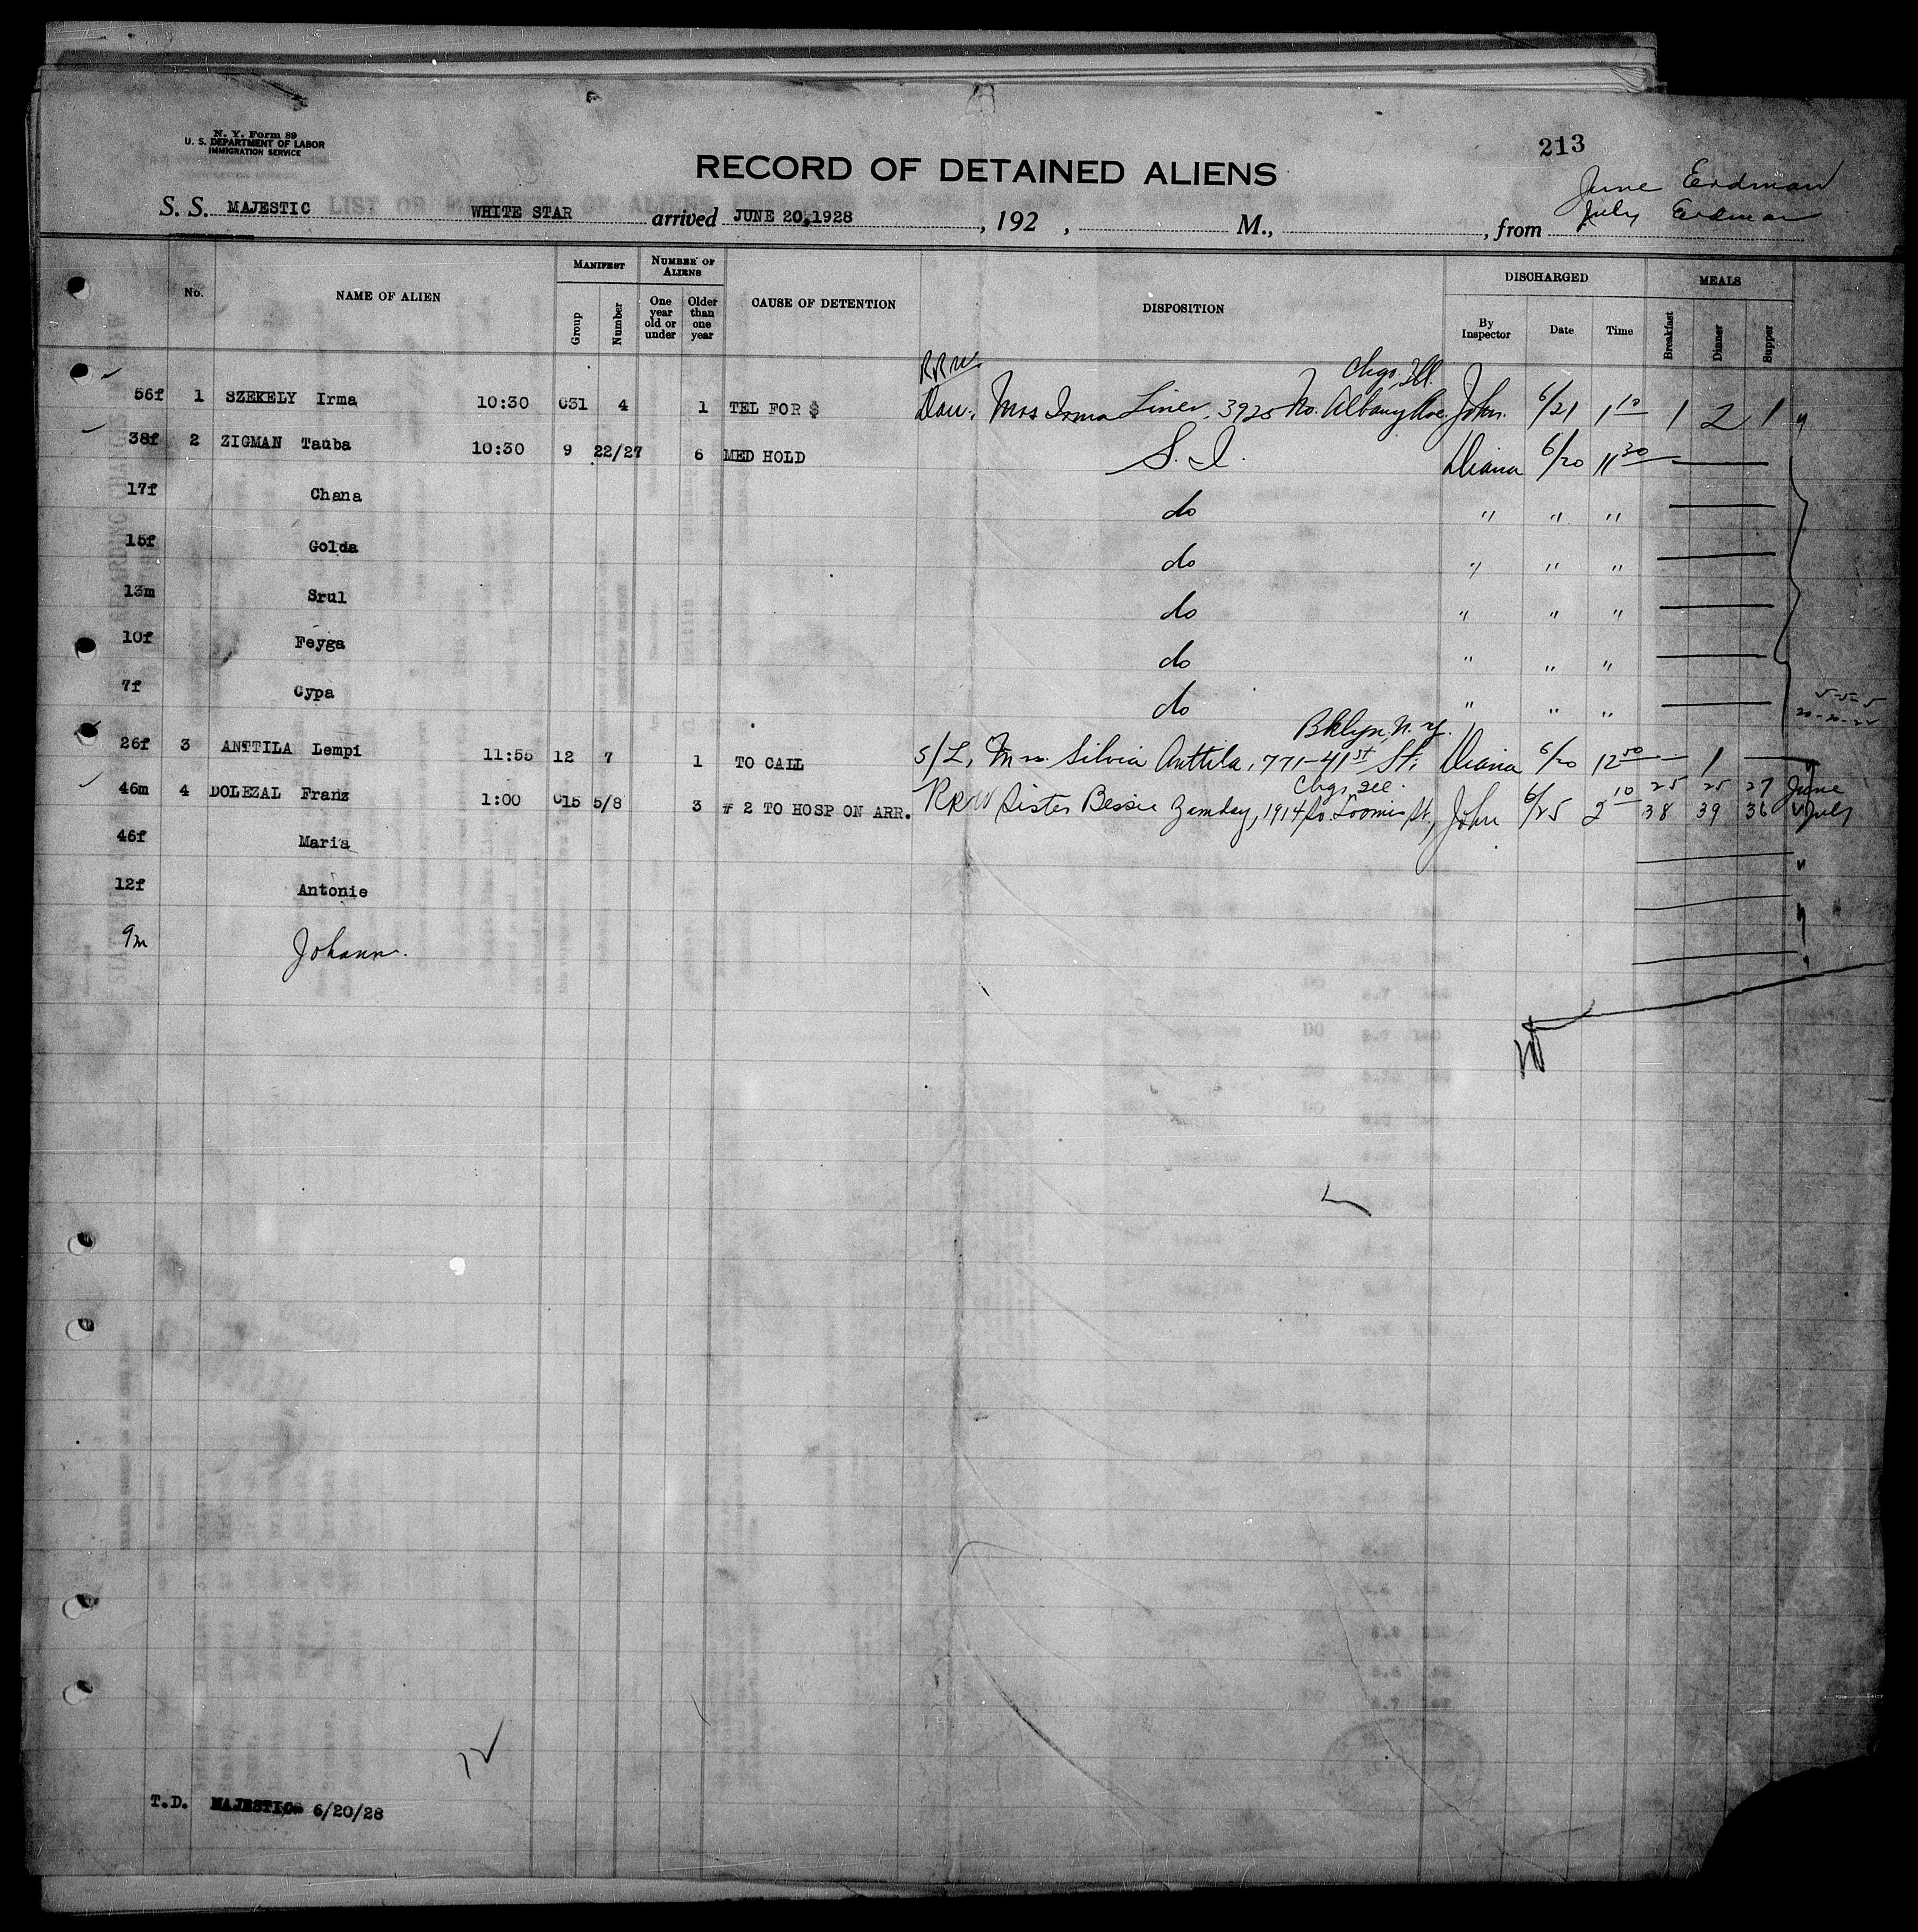 N. Y. Form 89
U. S. DEPARTMENT OF LABOR
IMMIGRATION SERVICE
213
RECORD OF DETAINED ALIENS
June Erdman
S. S. MAJESTIC WHITE STAR arrived JUNE 20,1928 , 192 , M., , from July Erdman
No. NAME OF ALIEN MANIFEST Group Number NUMBER OF ALIENS One year old or under Older than one year CAUSE OF DETENTION DISPOSITION DISCHARGED By Inspector Date Time MEALS Breakfast Dinner Supper
RRW Chgo. Ill.
56f 1 SZEKELY Irma 10:30 C31 4 1 TEL FOR $ Dau. Mrs Irma Liner, 3925 No. Albany Ave. John. 6/21 1 10 1 2 1
38f 2 ZIGMAN Tauba 10:30 9 22/27 6 MED HOLD S. I. Diana 6/20 11 30
17f Chana do " " "
15f Golda do " " "
13m Srul do " " "
10f Feyga do " " "
7f Cypa do " " "
Bklyn, N. Y.
26f 3 ANTTILA Lempi 11:55 12 7 1 TO CALL S/L, Mrs. Silvia Anttila, 771-41st St. Diana 6/20 12 50 1
Chgo, Ill. 25 25 27 June
46m 4 DOLEZAL Franz 1:00 C15 5/8 3 # 2 TO HOSP ON ARR. RRW Sister Bessie 1914 So. Loomis St., John 6/25 2 10 38 39 36 July
46f Maria
12f Antonie
9m Johann.
12
T.D. MAJESTIC 6/20/28